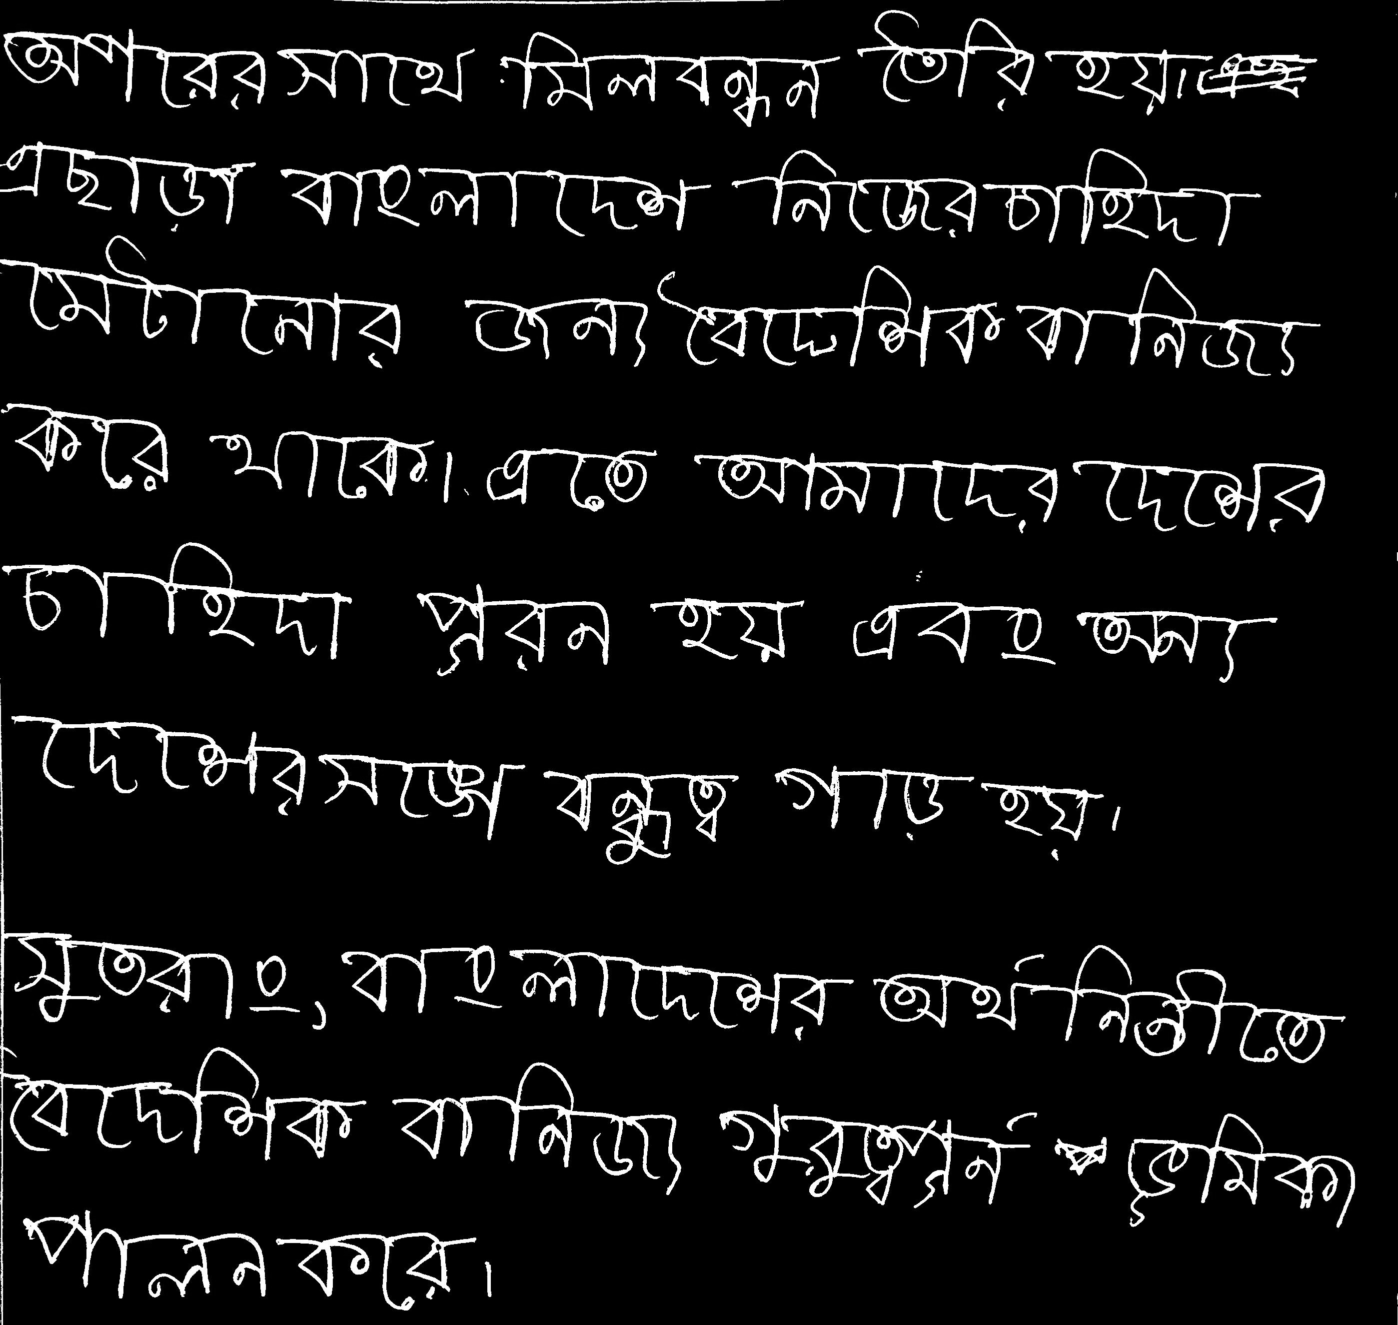 অপরের সাথে মিলবন্ধন তৈরি হয়।
এছাড়া বাংলাদেশ নিজের চাহিদা
মেটানোর জন্য বৈদেশিক বানিজ্য
করে থাকে। এতে আমাদের দেশের
চাহিদা পূরন হয় এবং অন্য
দেশের সঙ্গে বন্ধুত্ব গাড় হয়।
সুতরাং, বাংলাদেশের অর্থনিতীতে
বৈদেশিক বানিজ্য গুরুত্বপূর্ন ভূমিকা
পালন করে।